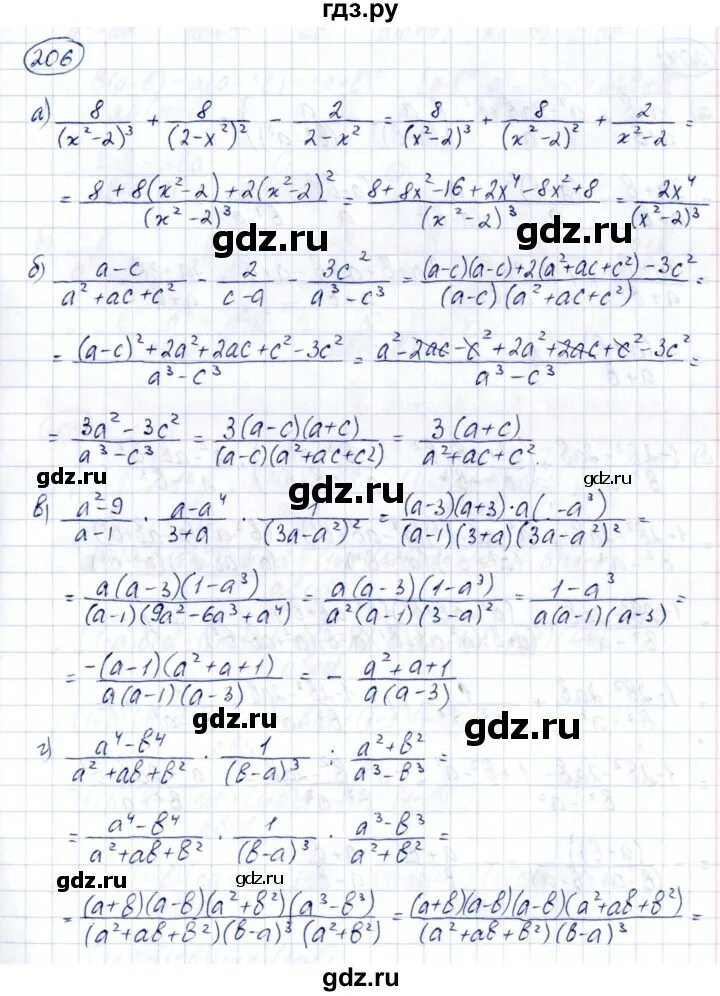 гдз.ру
206
а) 8/(x²-2)³ + 8/(2-x²)² - 2/(2-x²) = 8/(x²-2)³ + 8/(x²-2)² + 2/(x²-2) =
= (8+8(x²-2)+2(x²-2)²)/(x²-2)³ = (8+8x²-16+2x⁴-8x²+8)/(x²-2)³ = 2x⁴/(x²-2)³
gdz.ru gdz.ru
б) (a-c)/(a²+ac+c²) - 2/(c-a) - 3c²/(a³-c³) = ((a-c)(a-c)+2(a²+ac+c²)-3c²)/((a-c)(a²+ac+c²)) =
= ((a-c)²+2a²+2ac+c²-3c²)/(a³-c³) = (a²-2ac-c²+2a²+2ac+c²-3c²)/(a³-c³) =
= (3a²-3c²)/(a³-c³) = 3(a-c)(a+c)/((a-c)(a²+ac+c2)) = 3(a+c)/(a²+ac+c²).
gdz.ru gdz.ru gdz.ru
в) (a²-9)/(a-1) · (a-a⁴)/(3+a) · 1/(3a-a²)² = (a-3)(a+3)·a( -a³)/((a-1)(3+a)(3a-a²)²) =
= a(a-3)(1-a³)/((a-1)(9a²-6a³+a⁴)) = a(a-3)(1-a³)/(a²(a-1)(3-a)²) = (1-a³)/(a(a-1)(a-3)) =
= -(a-1)(a²+a+1)/(a(a-1)(a-3)) = - (a²+a+1)/(a(a-3))
gdz.ru gdz.ru
г) (a⁴-b⁴)/(a²+ab+b²) · 1/(b-a)³ : (a²+b²)/(a³-b³) =
= (a⁴-b⁴)/(a²+ab+b²) · 1/(b-a)³ · (a³-b³)/(a²+b²) =
gdz.ru gdz.ru
= (a+b)(a-b)(a²+b²)(a³-b³)/((a²+ab+b²)(b-a)³(a²+b²)) = (a+b)(a-b)(a-b)(a²+ab+b²)/((a²+ab+b²)(b-a)³) =
gdz.ru